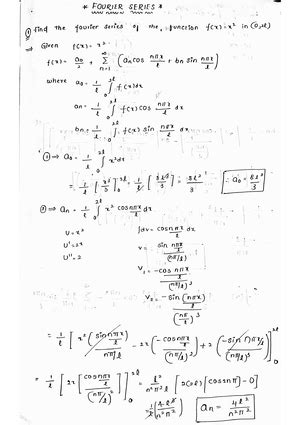 * FOURIER SERIES *
① find the fourier series of the function f(x)=x² in (0,2l)
⇒ Given f(x) = x²
f(x) = a₀/2 + Σ_{n=1}^{∞} (aₙ cos nπx/l + bn sin nπx/l)
where a₀ = 1/l ∫₀^{2l} f(x)dx
an = 1/l ∫₀^{2l} f(x) cos nπx/l dx
bn = 1/l ∫₀^{2l} f(x) sin nπx/l dx
① ⇒ a₀ = 1/l ∫₀^{2l} x² dx
= 1/l [x³/3]₀^{2l} = 1/l [8l³/3] = 8l²/3 ∴ a₀ = 8l²/3
② ⇒ an = 1/l ∫₀^{2l} x² cos nπx/l dx
U = x² ∫dv = cos nπx/l dx
U' = 2x v = sin nπx/l / (nπ/l)
U'' = 2 V₁ = -cos nπx/l / (nπ/l)²
V₂ = -sin (nπx/l) / (nπ/l)³
= 1/l [x² (sin nπx/l / nπ/l) - 2x (-cos nπx/l / (nπ/l)²) + 2 (-sin nπx/l / (nπ/l)³)]₀^{2l}
= 1/l [2x [cos nπx/l / (nπ/l)²]]₀^{2l} = l²/n²π² [2(2l) [cos 2nπ] - 0]
an = 4l²/n²π²